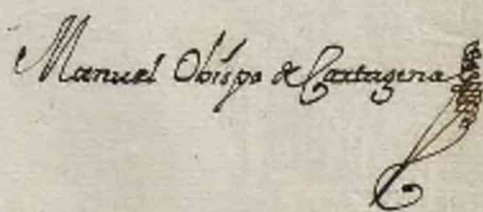 Manuel Obispo de Cartagena